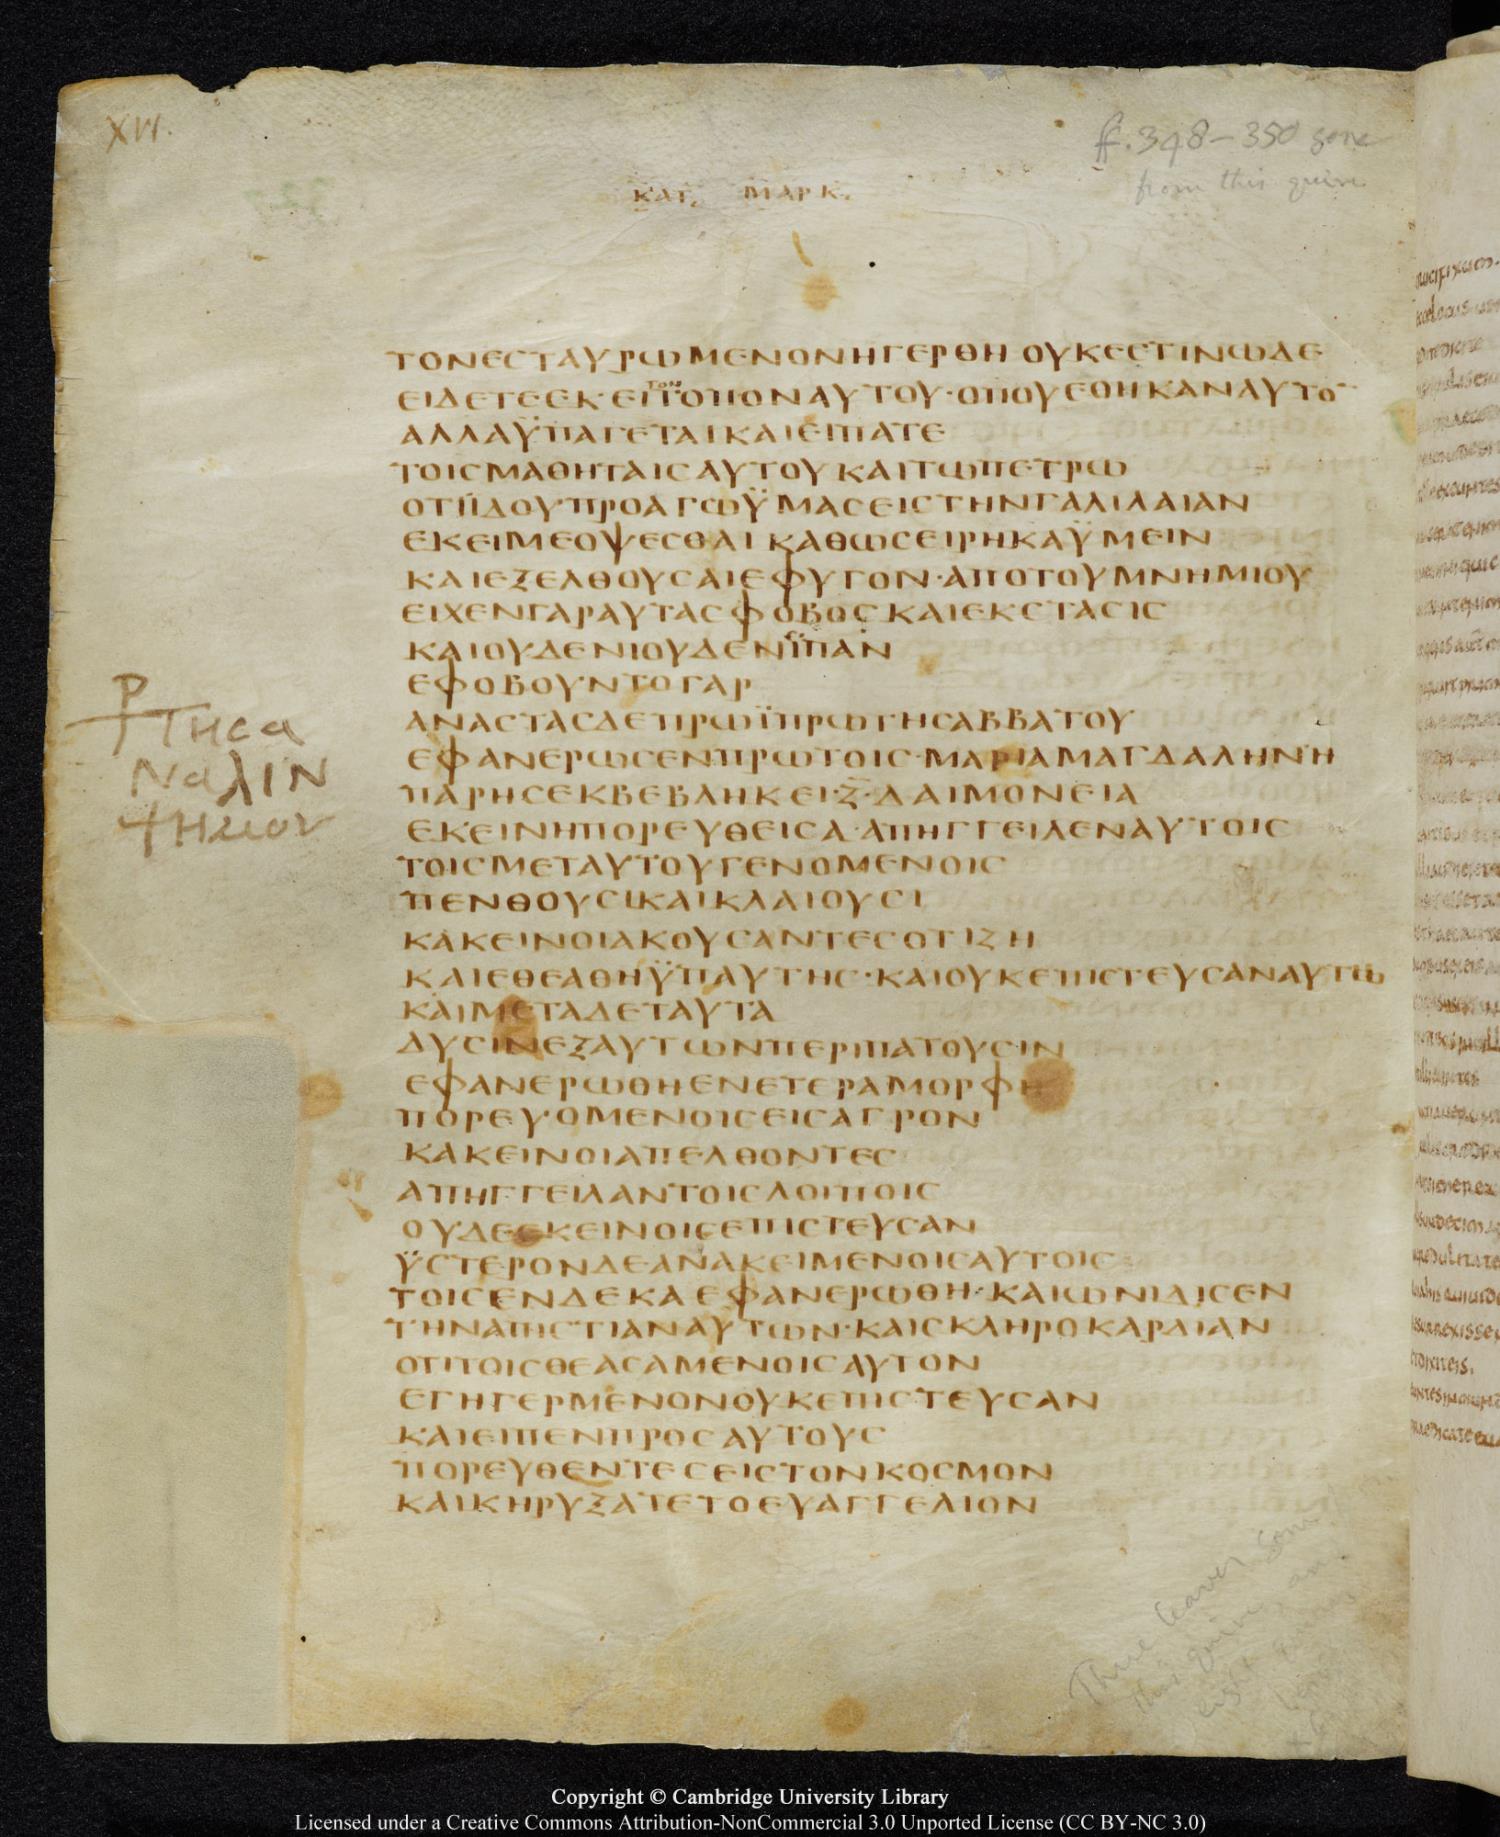 XVI.
ff. 348-350 gone
from this quire
ΚΑΤ. ΜΑΡΚ.
ΤΟΝΕCΤΑΥΡΩΜΕΝΟΝΗΓΕΡΘΗ ΟΥΚΕCΤΙΝΩΔΕ
ΕΙΔΕΤΕΕΚΕΙΤΟΝΤΟΠΟΝΑΥΤΟΥ·ΟΠΟΥΕΘΗΚΑΝΑΥΤΟ̅
ΑΛΛΑΫΠΑΓΕΤΑΙΚΑΙΕΙΠΑΤΕ
ΤΟΙCΜΑΘΗΤΑΙCΑΥΤΟΥΚΑΙΤΩΠΕΤΡΩ
ΟΤΙΪΔΟΥΠΡΟΑΓΩΫΜΑCΕΙCΤΗΝΓΑΛΙΛΑΙΑΝ
ΕΚΕΙΜΕΟΨΕCΘΑΙ ΚΑΘΩCΕΙΡΗΚΑΫΜΕΙΝ
ΚΑΙΕΞΕΛΘΟΥCΑΙΕΦΥΓΟΝ·ΑΠΟΤΟΥΜΝΗΜΙΟΥ
ΕΙΧΕΝΓΑΡΑΥΤΑCΦΟΒΟCΚΑΙΕΚCΤΑCΙC
ΚΑΙΟΥΔΕΝΙΟΥΔΕΝΕΙΠΑΝ
ΕΦΟΒΟΥΝΤΟΓΑΡ
ΑΝΑCΤΑCΔΕΠΡΩΪΠΡΩΤΗCΑΒΒΑΤΟΥ
ΕΦΑΝΕΡΩCΕΝΠΡΩΤΟΙC·ΜΑΡΙΑΜΑΓΔΑΛΗΝΗ
ΠΑΡΗCΕΚΒΕΒΛΗΚΕΙ·Ζ̅·ΔΑΙΜΟΝΕΙΑ
ΕΚΕΙΝΗΠΟΡΕΥΘΕΙCΑ·ΑΠΗΓΓΕΙΛΕΝΑΥΤΟΙC
ΤΟΙCΜΕΤΑΥΤΟΥΓΕΝΟΜΕΝΟΙC
ΠΕΝΘΟΥCΙΚΑΙΚΛΑΙΟΥCΙ
ΚΑΚΕΙΝΟΙΑΚΟΥCΑΝΤΕCΟΤΙΖΗ
ΚΑΙΕΘΕΑΘΗΫΠΑΥΤΗC·ΚΑΙΟΥΚΕΠΙCΤΕΥCΑΝΑΥΤΩ
ΚΑΙΜΕΤΑΔΕΤΑΥΤΑ
ΔΥCΙΝΕΞΑΥΤΩΝΠΕΡΙΠΑΤΟΥCΙΝ
ΕΦΑΝΕΡΩΘΗΕΝΕΤΕΡΑΜΟΡΦΗ
ΠΟΡΕΥΟΜΕΝΟΙCΕΙCΑΓΡΟΝ
ΚΑΚΕΙΝΟΙΑΠΕΛΘΟΝΤΕC
ΑΠΗΓΓΕΙΛΑΝΤΟΙCΛΟΙΠΟΙC
ΟΥΔΕΕΚΕΙΝΟΙCΕΠΙCΤΕΥCΑΝ
ΫCΤΕΡΟΝΔΕΑΝΑΚΕΙΜΕΝΟΙCΑΥΤΟΙC
ΤΟΙCΕΝΔΕΚΑΕΦΑΝΕΡΩΘΗ·ΚΑΙΩΝΙΔΙCΕΝ
ΤΗΝΑΠΙCΤΙΑΝΑΥΤΩΝ·ΚΑΙCΚΛΗΡΟΚΑΡΔΙΑΝ
ΟΤΙΤΟΙCΘΕΑCΑΜΕΝΟΙCΑΥΤΟΝ
ΕΓΗΓΕΡΜΕΝΟΝΟΥΚΕΠΙCΤΕΥCΑΝ
ΚΑΙΕΙΠΕΝΠΡΟCΑΥΤΟΥC
ΠΟΡΕΥΘΕΝΤΕCΕΙCΤΟΝΚΟCΜΟΝ
ΚΑΙΚΗΡΥΞΑΤΕΤΟΕΥΑΓΓΕΛΙΟΝ
Three leaves
this quire
Copyright © Cambridge University Library
Licensed under a Creative Commons Attribution-NonCommercial 3.0 Unported License (CC BY-NC 3.0)